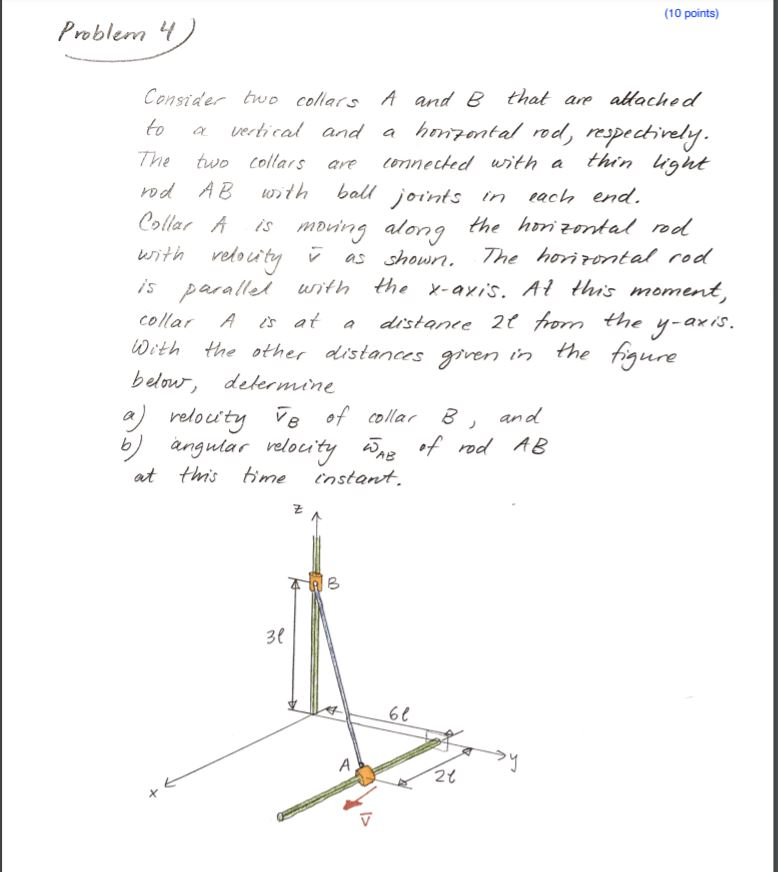 (10 points)
Problem 4)
Consider two collars A and B that are attached
to a vertical and a horizontal rod, respectively.
The two collars are connected with a thin light
rod AB with ball joints in each end.
Collar A is moving along the horizontal rod
with velocity v̄ as shown. The horizontal rod
is parallel with the x-axis. At this moment,
collar A is at a distance 2ℓ from the y-axis.
With the other distances given in the figure
below, determine
a) velocity v̄_B of collar B, and
b) angular velocity ω̄_AB of rod AB
at this time instant.
z
B
3ℓ
6ℓ
A
y
2ℓ
x
v̄